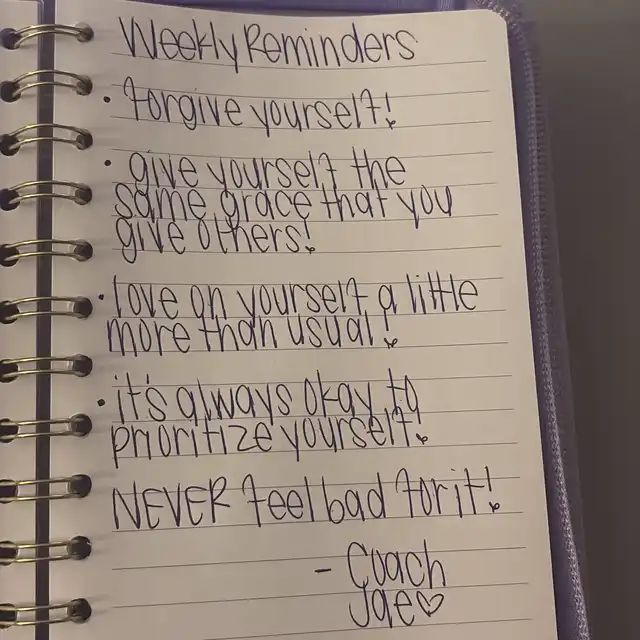 Weekly Reminders
• forgive yourself!
• give yourself the
same grace that you
give others!
• love on yourself a little
more than usual!
• it's always okay to
prioritize yourself!
NEVER feel bad for it!
- Coach
Jae♡